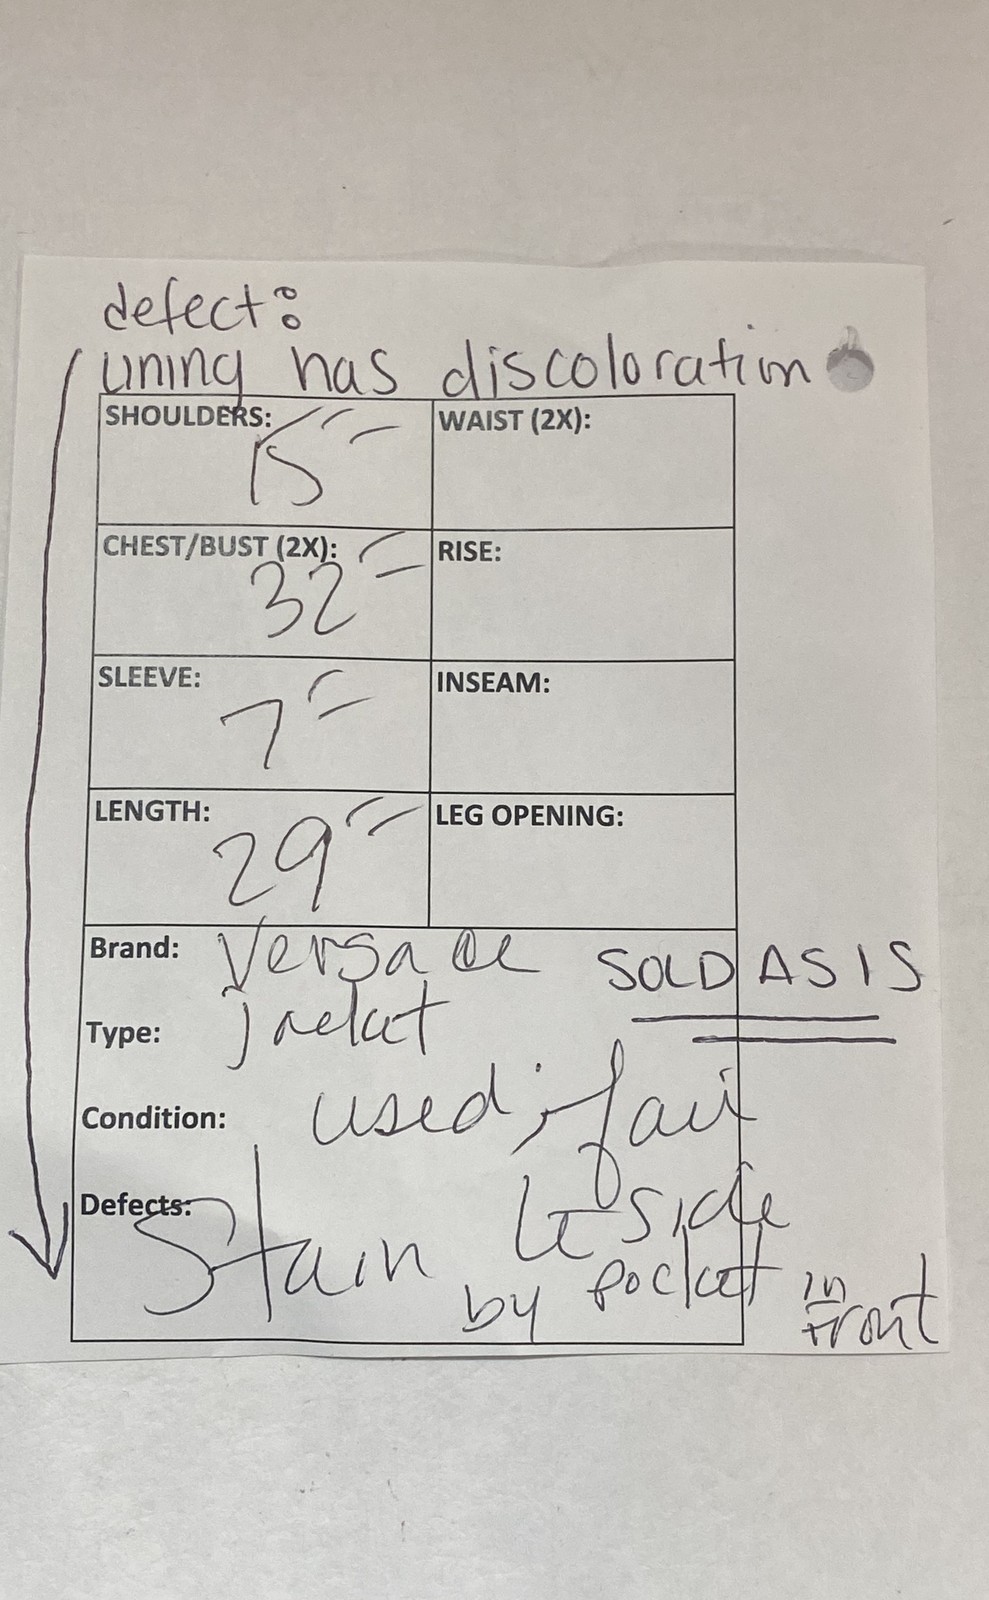 defect:
lining has discoloration
SHOULDERS: 15"
WAIST (2X):
CHEST/BUST (2X): 32"
RISE:
SLEEVE: 7"
INSEAM:
LENGTH: 29"
LEG OPENING:
Brand: Versace
SOLD AS IS
Type: jacket
Condition: used; fair
Defects: Stain Lt side
by pocket in front